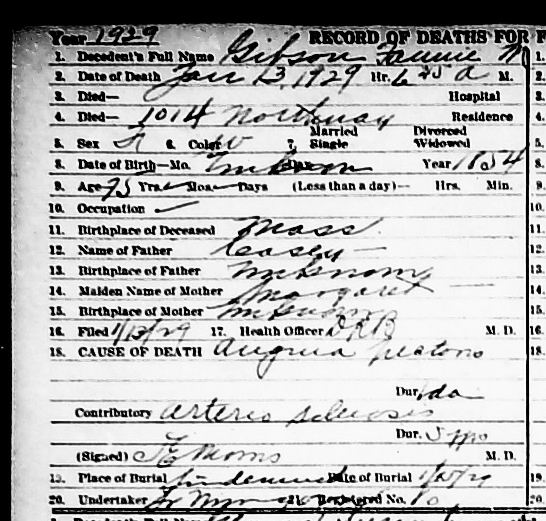 Year 1929 RECORD OF DEATHS FOR
1. Decedent's Full Name Gibson Fannie M 1.
2. Date of Death Jan 13, 1929 Hr. 6 25 a M. 2.
3. Died— Hospital 3.
4. Died— 1014 Northway Residence 4.
Married Divorced
5. Sex F 6. Color W 7. Single Widowed 5.
8. Date of Birth—Mo. Unknown Year 1854 8.
9. Age 75 Yrs. Mos. Days (Less than a day)— Hrs. Min. 9.
10. Occupation 10.
11. Birthplace of Deceased Mass. 11.
12. Name of Father Casey 12.
13. Birthplace of Father Unknown 13.
14. Maiden Name of Mother Margaret 14.
15. Birthplace of Mother Unknown 15.
16. Filed 1/13/29 17. Health Officer DRB M. D. 16.
18. CAUSE OF DEATH Angina Pectoris 18.
Dur. 1 da
Contributory Arterio Sclerosis
Dur. 5 mo
(Signed) M. D.
19. Place of Burial Date of Burial 1/15/29 19.
20. Undertaker 21. Registered No. 20.